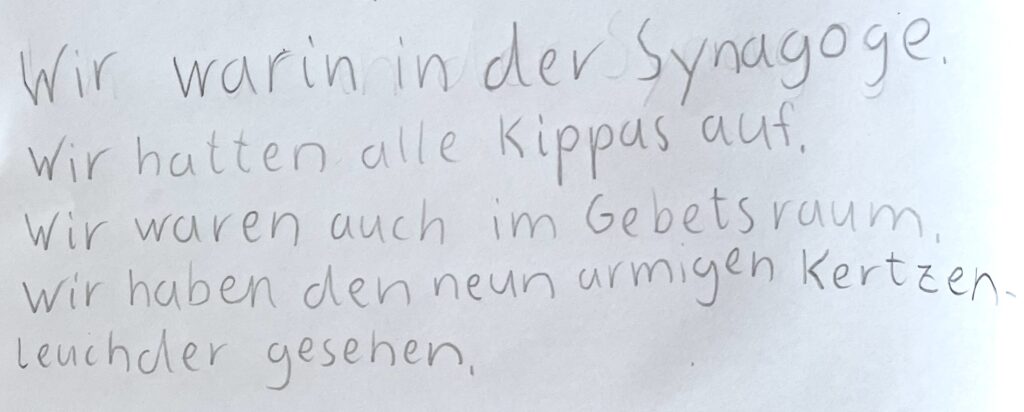 Wir warin in der Synagoge.
Wir hatten alle Kippas auf.
Wir waren auch im Gebetsraum.
Wir haben den neun armigen Kertzen-
leuchder gesehen.